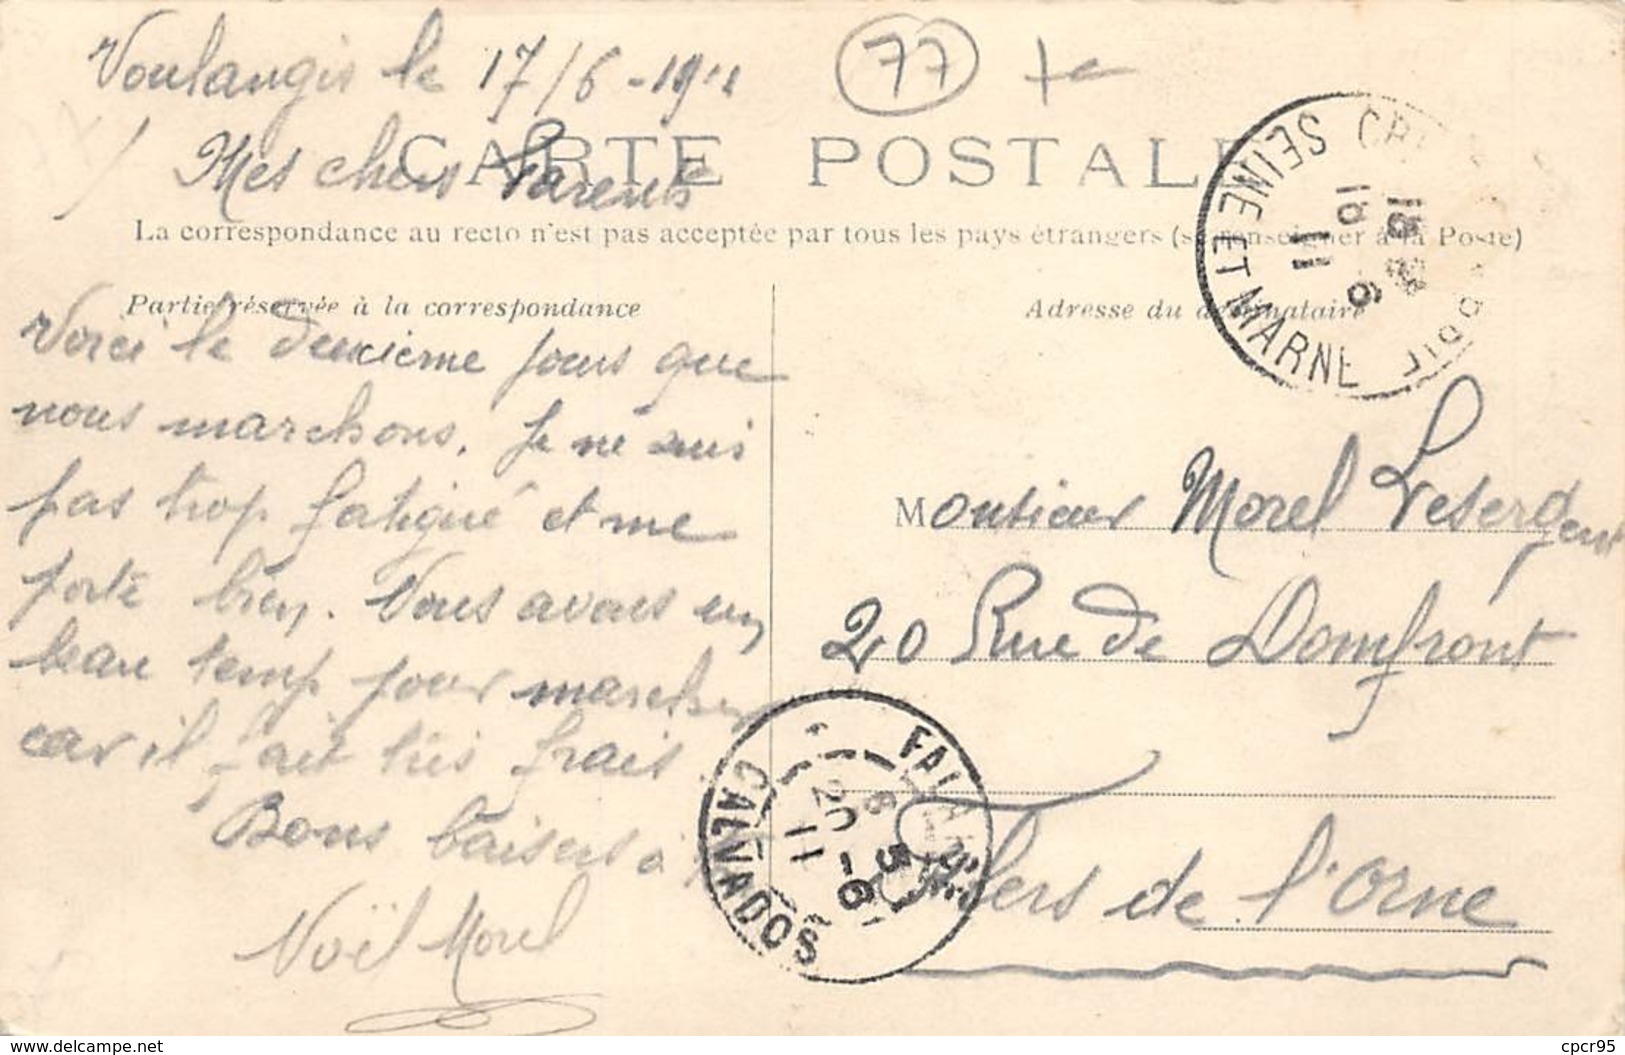 Voulangis le 17/6-1911
77
CARTE POSTALE
Mes chers Parents
La correspondance au recto n'est pas acceptée par tous les pays étrangers (se renseigner à la Poste)
Partie réservée à la correspondance
Voici le deuxième jours que
nous marchons. Je ne suis
pas trop fatigué et me
porte bien. Nous avons un
beau temp pour marcher
car il fait très frais
Bons baisers à
Noël Morel
Adresse du destinataire
Monsieur Morel Lesergent
20 Rue de Domfront
Flers de l'Orne
SEINE ET MARNE
18
16 6
11
FALAISE
CALVADOS
20 -6
11
cpcr95
www.delcampe.net